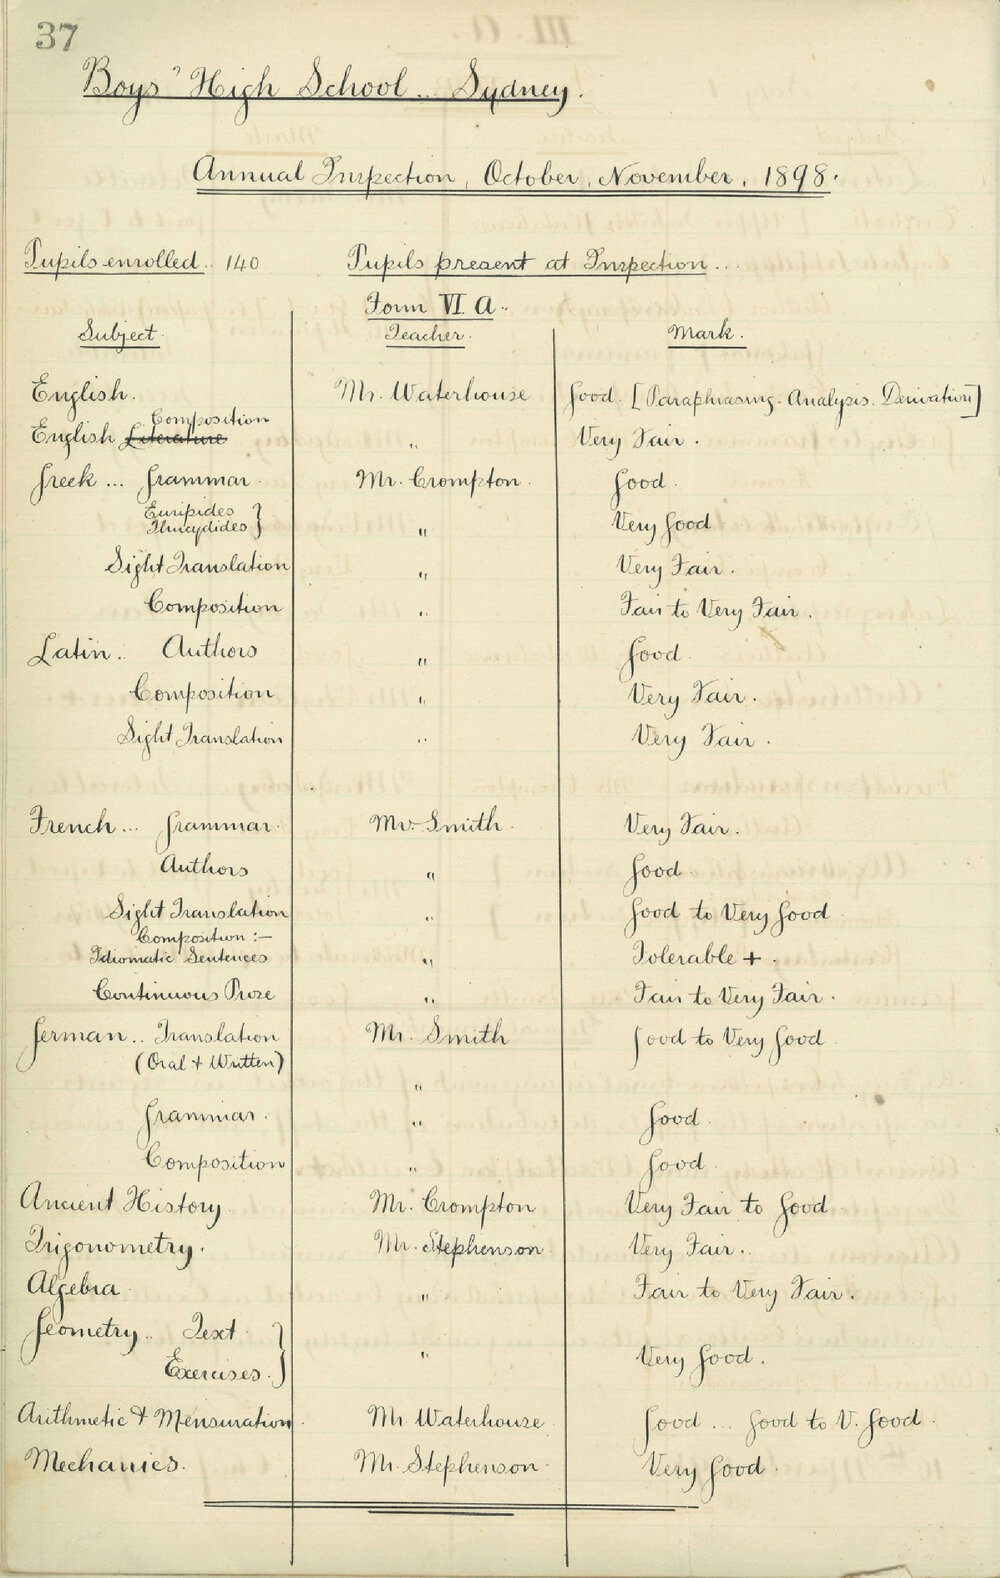 37
Boys' High School... Sydney.
Annual Inspection, October, November, 1898.
Pupils enrolled.. 140 Pupils present at Inspection...
Form VI. A..
Subject. Teacher. Mark.
English. Mr. Waterhouse Good. [Paraphrasing. Analysis. Derivation]
Composition
English Literature " Very Fair.
Greek ... Grammar Mr. Crompton. Good.
Euripides
Thucydides } " Very Good
Sight Translation " Very Fair.
Composition " Fair to Very Fair.
Latin. Authors " Good.
Composition " Very Fair.
Sight Translation " Very Fair.
French... Grammar. Mr. Smith. Very Fair.
Authors " Good
Sight Translation " Good to Very Good
Composition :—
Idiomatic Sentences " Tolerable +.
Continuous Prose " Fair to Very Fair.
German.. Translation Mr. Smith Good to Very Good
(Oral + Written) "
Grammar. " Good.
Composition " Good.
Ancient History Mr. Crompton Very Fair to Good
Trigonometry. Mr. Stephenson Very Fair.
Algebra. " Fair to Very Fair.
Geometry.. Text
Exercises. } " Very Good.
Arithmetic & Mensuration. Mr Waterhouse Good ... Good to V. Good.
Mechanics. Mr. Stephenson. Very Good.